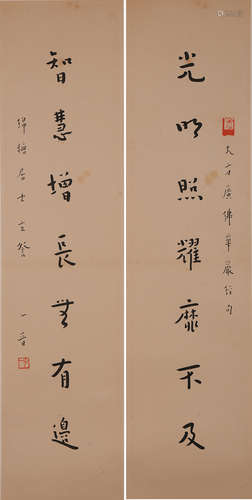 光明照耀靡不及
大方廣佛華嚴經句
智慧增長無有邊
居士玄詧
一音